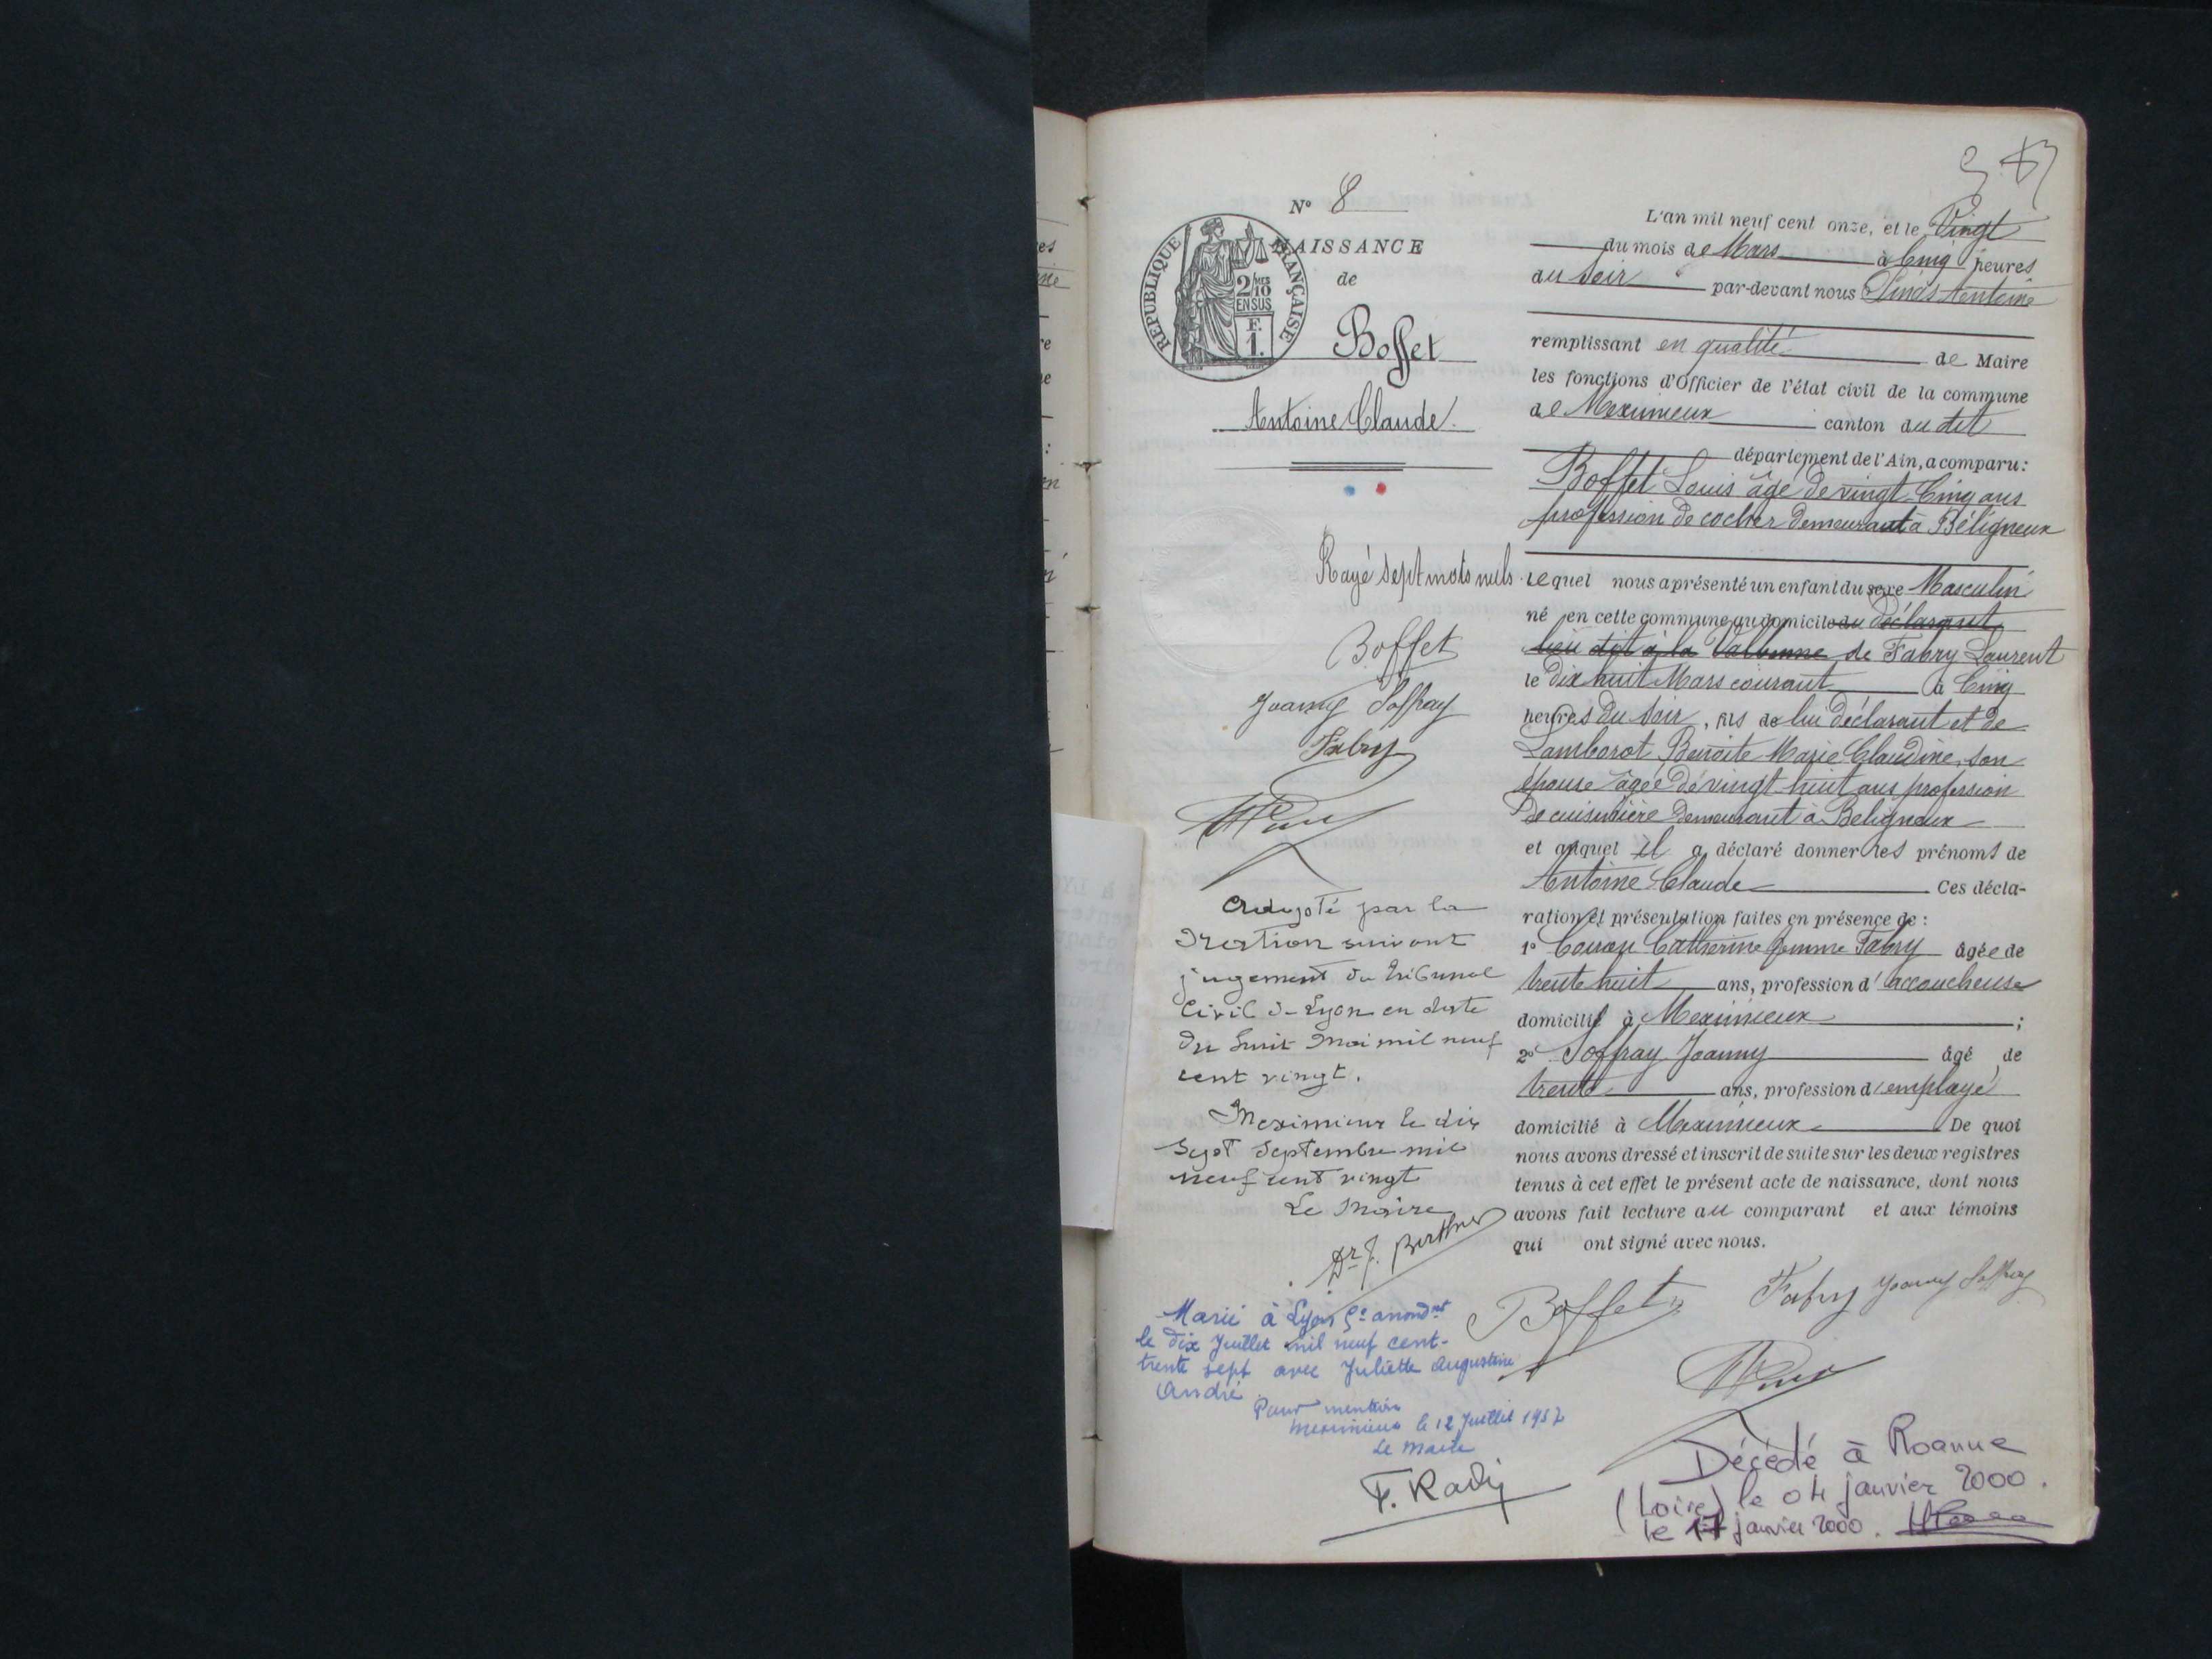 N° 8
NAISSANCE
de
Boffet
Antoine Claude
REPUBLIQUE FRANÇAISE
2/10 MES
EN SUS
F.
1.
L'an mil neuf cent onze, et le Vingt
du mois de Mars à Cinq heures
du Soir par-devant nous Antoine
remplissant en qualité de Maire
les fonctions d'Officier de l'état civil de la commune
de Meximieux canton du dit
département de l'Ain, a comparu :
Boffet Louis âgé de vingt-Cinq ans
profession de cocher demeurant à Béligneux
lequel nous a présenté un enfant du sexe Masculin
né en cette commune au domicile du déclarant
lieu dit à la Valbonne de Fabry Laurent
le Dix huit Mars courant à Cinq
heures du Soir, fils de lui déclarant et de
Lamborot Benoite Marie Claudine, son
épouse âgée de vingt-huit ans profession
de cuisinière demeurant à Béligneux
et auquel il a déclaré donner les prénoms de
Antoine Claude Ces décla-
ration et présentation faites en présence de :
1° Catherine femme Fabry âgée de
trente huit ans, profession d'accoucheuse
domicilié à Meximieux ;
2° Joffray Joanny âgé de
trente ans, profession d'employé
domicilié à Meximieux De quoi
nous avons dressé et inscrit de suite sur les deux registres
tenus à cet effet le présent acte de naissance, dont nous
avons fait lecture au comparant et aux témoins
qui ont signé avec nous.
Boffet Fabry Joanny Joffray
Rayé sept mots nuls
Boffet
Joanny Joffray
Fabry
Adopté par la
Nation suivant
jugement du tribunal
Civil de Lyon en date
du huit Mai mil neuf
cent vingt.
Meximieux le dix
sept Septembre mil
neuf cent vingt
Le Maire
Dr J. Berthier
Marié à Lyon 5e arrondt
le dix Juillet mil neuf cent-
trente sept avec Juliette Augustine
André.
Pour mention
Meximieux le 12 Juillet 1937
Le Maire
Décédé à Roanne
(Loire) le 04 janvier 2000.
le 17 janvier 2000.